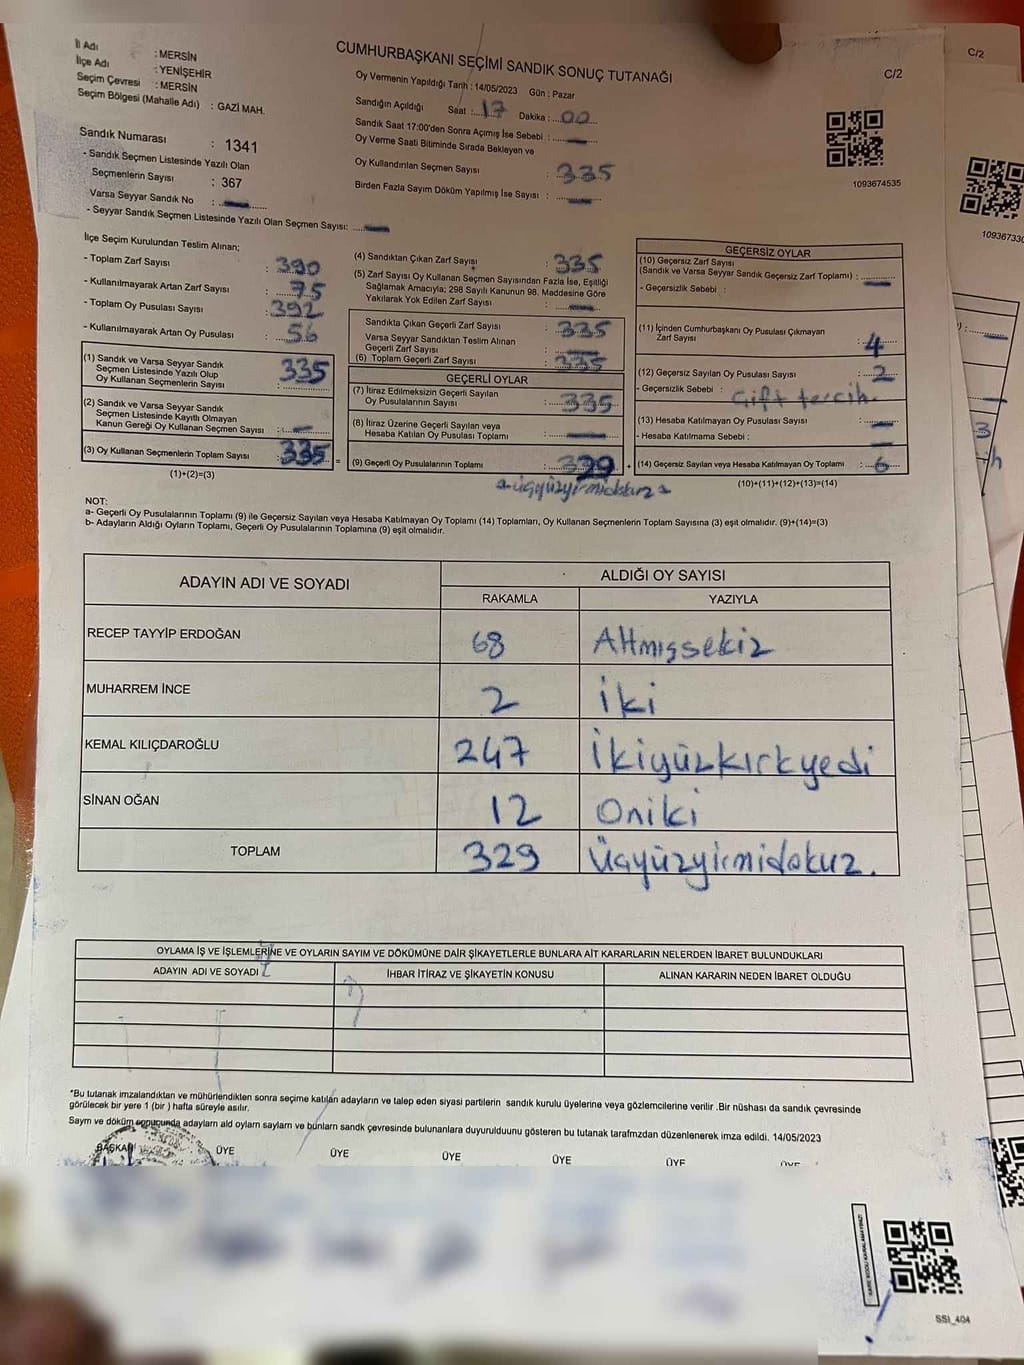 İl Adı : MERSİN
İlçe Adı : YENİŞEHİR
Seçim Çevresi : MERSİN
Seçim Bölgesi (Mahalle Adı) : GAZİ MAH.
Sandık Numarası : 1341
- Sandık Seçmen Listesinde Yazılı Olan
Seçmenlerin Sayısı : 367
Varsa Seyyar Sandık No :
- Seyyar Sandık Seçmen Listesinde Yazılı Olan Seçmen Sayısı:
CUMHURBAŞKANI SEÇİMİ SANDIK SONUÇ TUTANAĞI
C/2
C/2
Oy Vermenin Yapıldığı Tarih : 14/05/2023 Gün : Pazar
Sandığın Açıldığı Saat : 17 Dakika : 00
Sandık Saat 17:00'den Sonra Açımış İse Sebebi : —
Oy Verme Saati Bitiminde Sırada Bekleyen ve
Oy Kullandırılan Seçmen Sayısı : 335
Birden Fazla Sayım Döküm Yapılmış İse Sayısı : —
1093674535
İlçe Seçim Kurulundan Teslim Alınan;
- Toplam Zarf Sayısı : 390
- Kullanılmayarak Artan Zarf Sayısı : 75
- Toplam Oy Pusulası Sayısı : 392
- Kullanılmayarak Artan Oy Pusulası : 56
(1) Sandık ve Varsa Seyyar Sandık
Seçmen Listesinde Yazılı Olup
Oy Kullanan Seçmenlerin Sayısı : 335
(2) Sandık ve Varsa Seyyar Sandık
Seçmen Listesinde Kayıtlı Olmayan
Kanun Gereği Oy Kullanan Seçmen Sayısı : —
(3) Oy Kullanan Seçmenlerin Toplam Sayısı : 335 =
(1)+(2)=(3)
(4) Sandıktan Çıkan Zarf Sayısı : 335
(5) Zarf Sayısı Oy Kullanan Seçmen Sayısından Fazla İse, Eşitliği
Sağlamak Amacıyla; 298 Sayılı Kanunun 98. Maddesine Göre
Yakılarak Yok Edilen Zarf Sayısı : —
Sandıkta Çıkan Geçerli Zarf Sayısı : 335
Varsa Seyyar Sandıktan Teslim Alınan
Geçerli Zarf Sayısı : —
(6) Toplam Geçerli Zarf Sayısı : 335
GEÇERLİ OYLAR
(7) İtiraz Edilmeksizin Geçerli Sayılan
Oy Pusulalarının Sayısı : 335
(8) İtiraz Üzerine Geçerli Sayılan veya
Hesaba Katılan Oy Pusulası Toplamı : —
(9) Geçerli Oy Pusulalarının Toplamı : 329 +
üçyüzyirmidokuz
GEÇERSİZ OYLAR
(10) Geçersiz Zarf Sayısı
(Sandık ve Varsa Seyyar Sandık Geçersiz Zarf Toplamı) : —
- Geçersizlik Sebebi :
(11) İçinden Cumhurbaşkanı Oy Pusulası Çıkmayan
Zarf Sayısı : 4
(12) Geçersiz Sayılan Oy Pusulası Sayısı : 2
- Geçersizlik Sebebi : Çift tercih.
(13) Hesaba Katılmayan Oy Pusulası Sayısı : —
- Hesaba Katılmama Sebebi : —
(14) Geçersiz Sayılan veya Hesaba Katılmayan Oy Toplamı : 6
(10)+(11)+(12)+(13)=(14)
NOT:
a- Geçerli Oy Pusulalarının Toplamı (9) ile Geçersiz Sayılan veya Hesaba Katılmayan Oy Toplamı (14) Toplamları, Oy Kullanan Seçmenlerin Toplam Sayısına (3) eşit olmalıdır. (9)+(14)=(3)
b- Adayların Aldığı Oyların Toplamı, Geçerli Oy Pusulalarının Toplamına (9) eşit olmalıdır.
ADAYIN ADI VE SOYADI ALDIĞI OY SAYISI
RAKAMLA YAZIYLA
RECEP TAYYİP ERDOĞAN 68 Altmışsekiz
MUHARREM İNCE 2 İki
KEMAL KILIÇDAROĞLU 247 İkiyüzkırkyedi
SİNAN OĞAN 12 Oniki
TOPLAM 329 Üçyüzyirmidokuz.
OYLAMA İŞ VE İŞLEMLERİNE VE OYLARIN SAYIM VE DÖKÜMÜNE DAİR ŞİKAYETLERLE BUNLARA AİT KARARLARIN NELERDEN İBARET BULUNDUKLARI
ADAYIN ADI VE SOYADI İHBAR İTİRAZ VE ŞİKAYETİN KONUSU ALINAN KARARIN NEDEN İBARET OLDUĞU
*Bu tutanak imzalandıktan ve mühürlendikten sonra seçime katılan adayların ve talep eden siyasi partilerin sandık kurulu üyelerine veya gözlemcilerine verilir .Bir nüshası da sandık çevresinde
görülecek bir yere 1 (bir ) hafta süreyle asılır.
Sayım ve döküm sonucunda adayların ald oyların sayların ve bunların sandk çevresinde bulunanlara duyurulduunu gösteren bu tutanak tarafmzdan düzenlenerek imza edildi. 14/05/2023
BAŞKAN ÜYE ÜYE ÜYE ÜYE ÜYE ÜYE
SSI_404